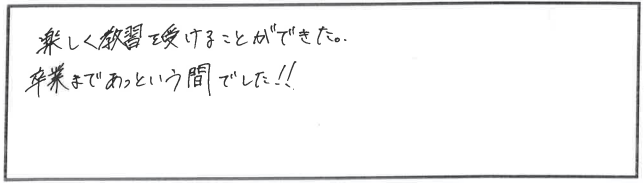 楽しく教習を受けることができた。
卒業まであっという間でした!!